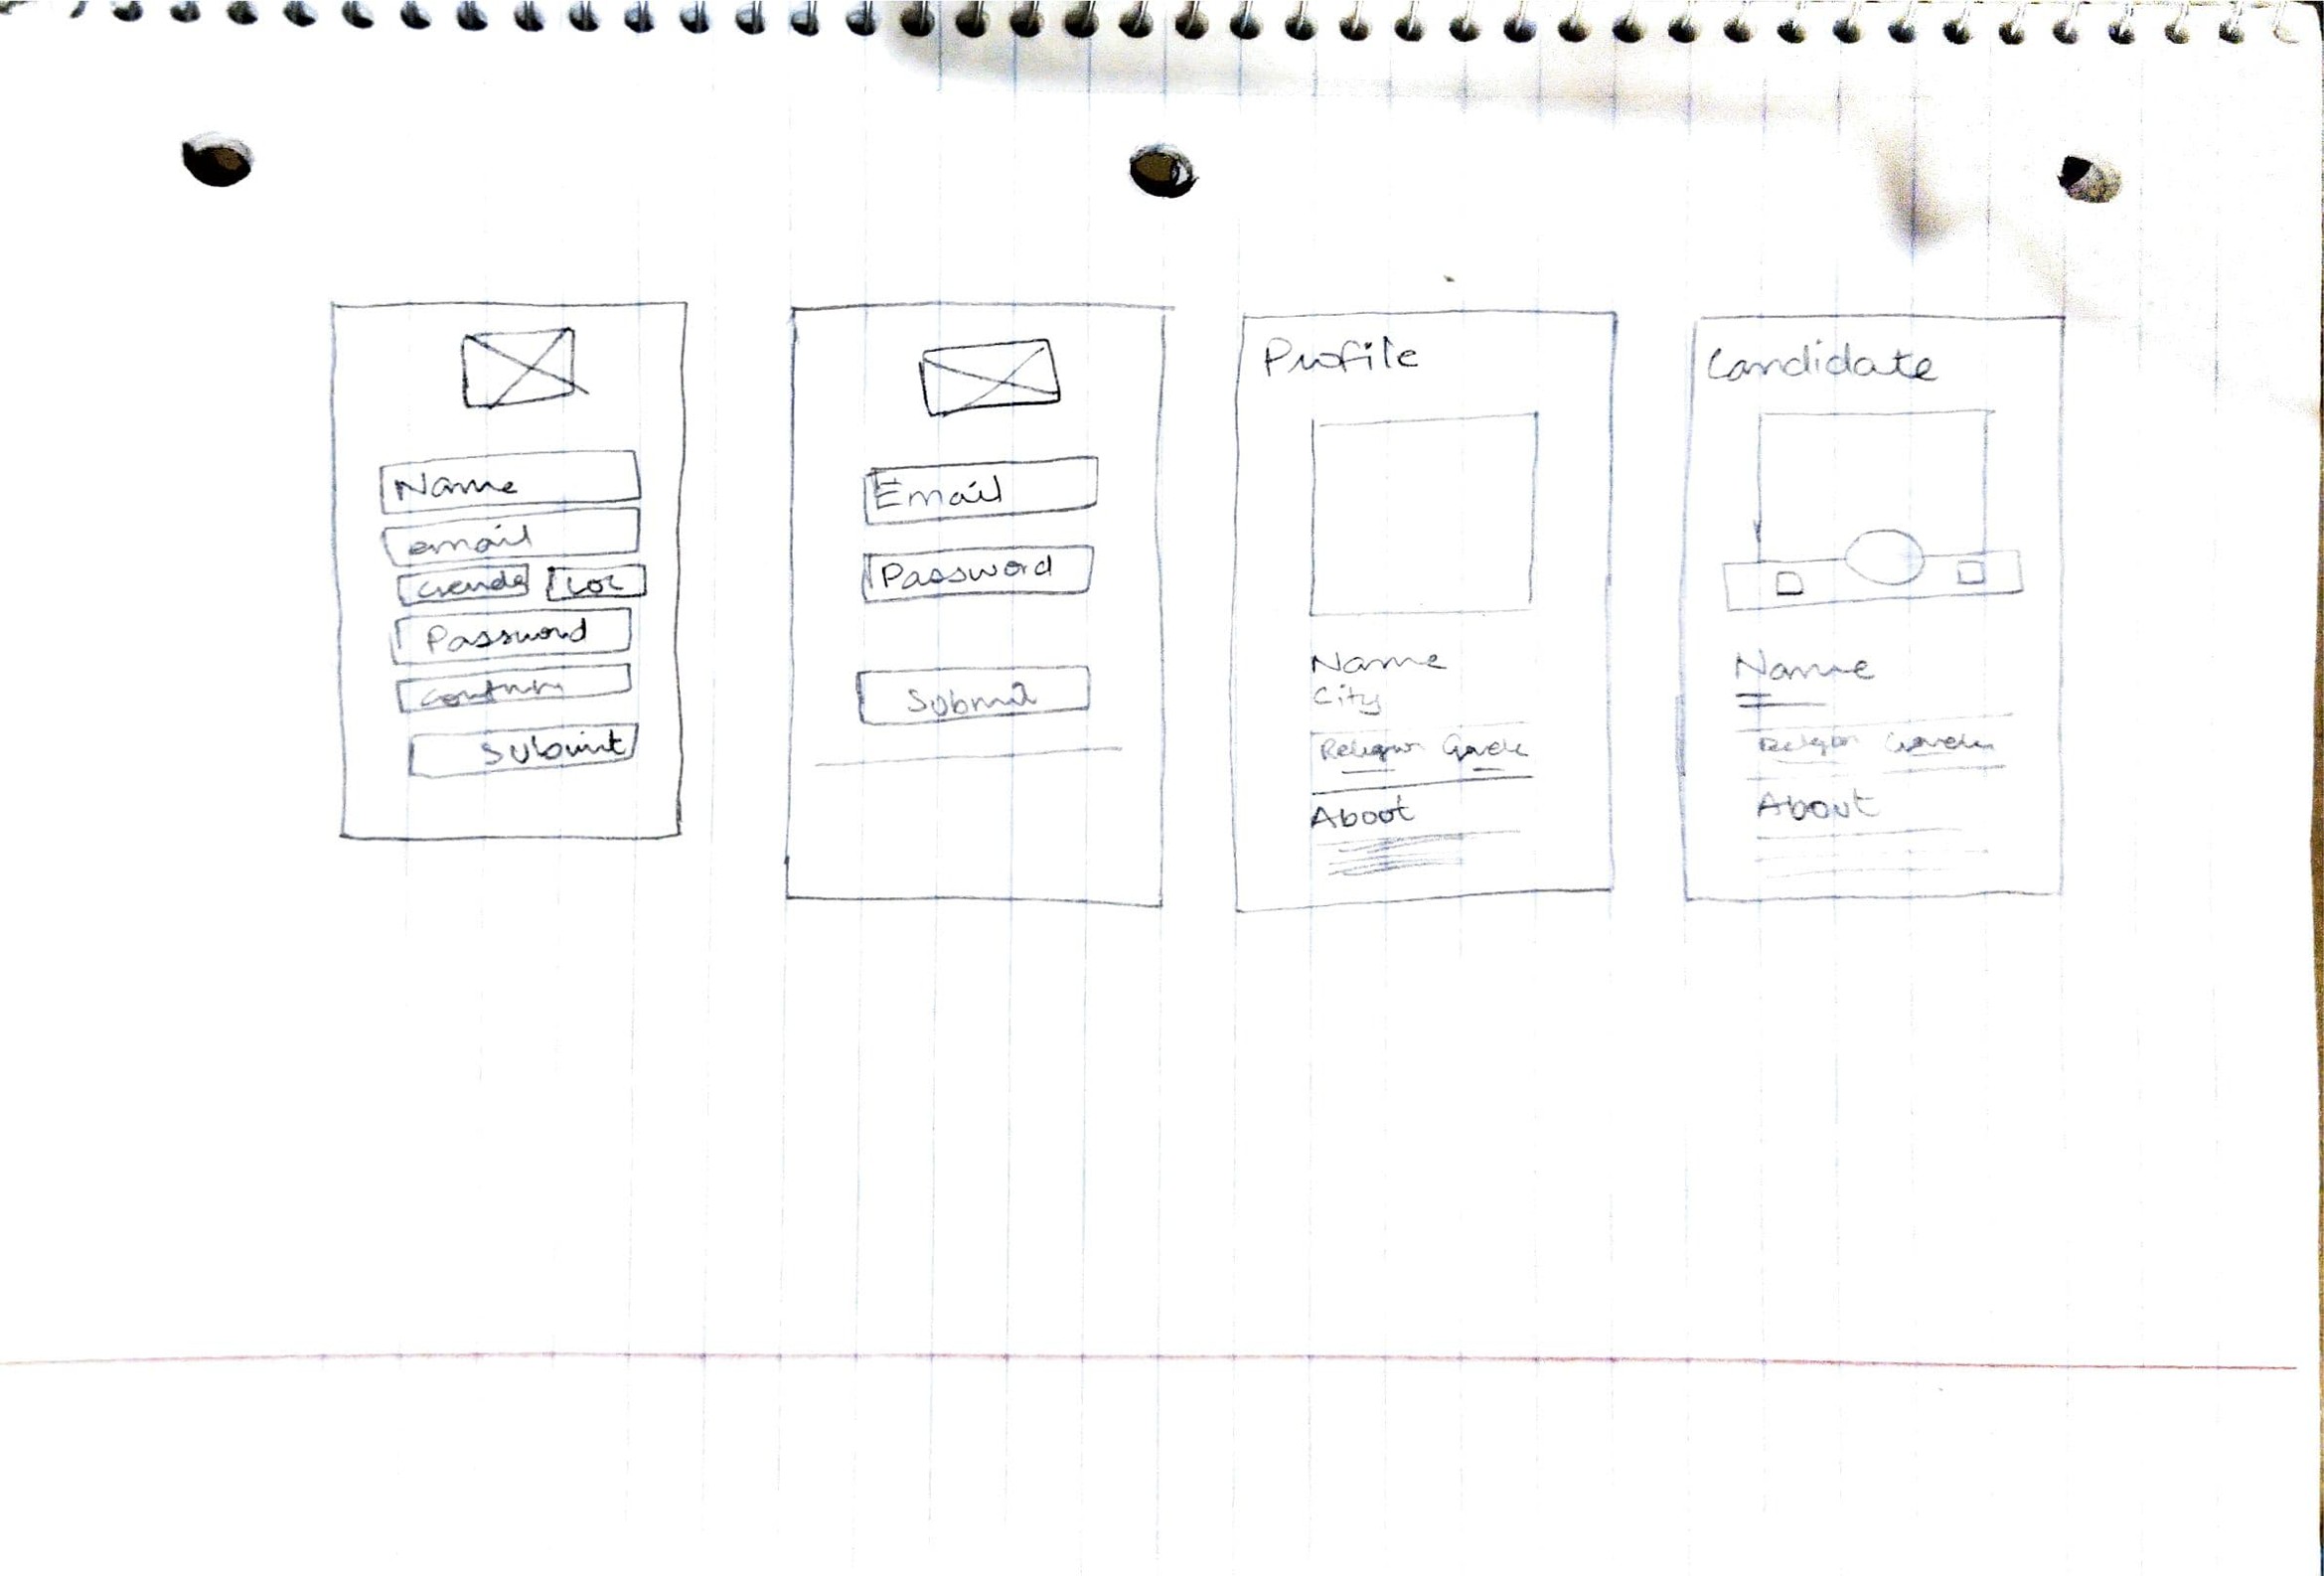 Name
email
Gende Loc
Password
Confirm
Submit
Email
Password
Submit
Profile
Name
City
Religion Gende
About
Candidate
Name
Religion Gender
About